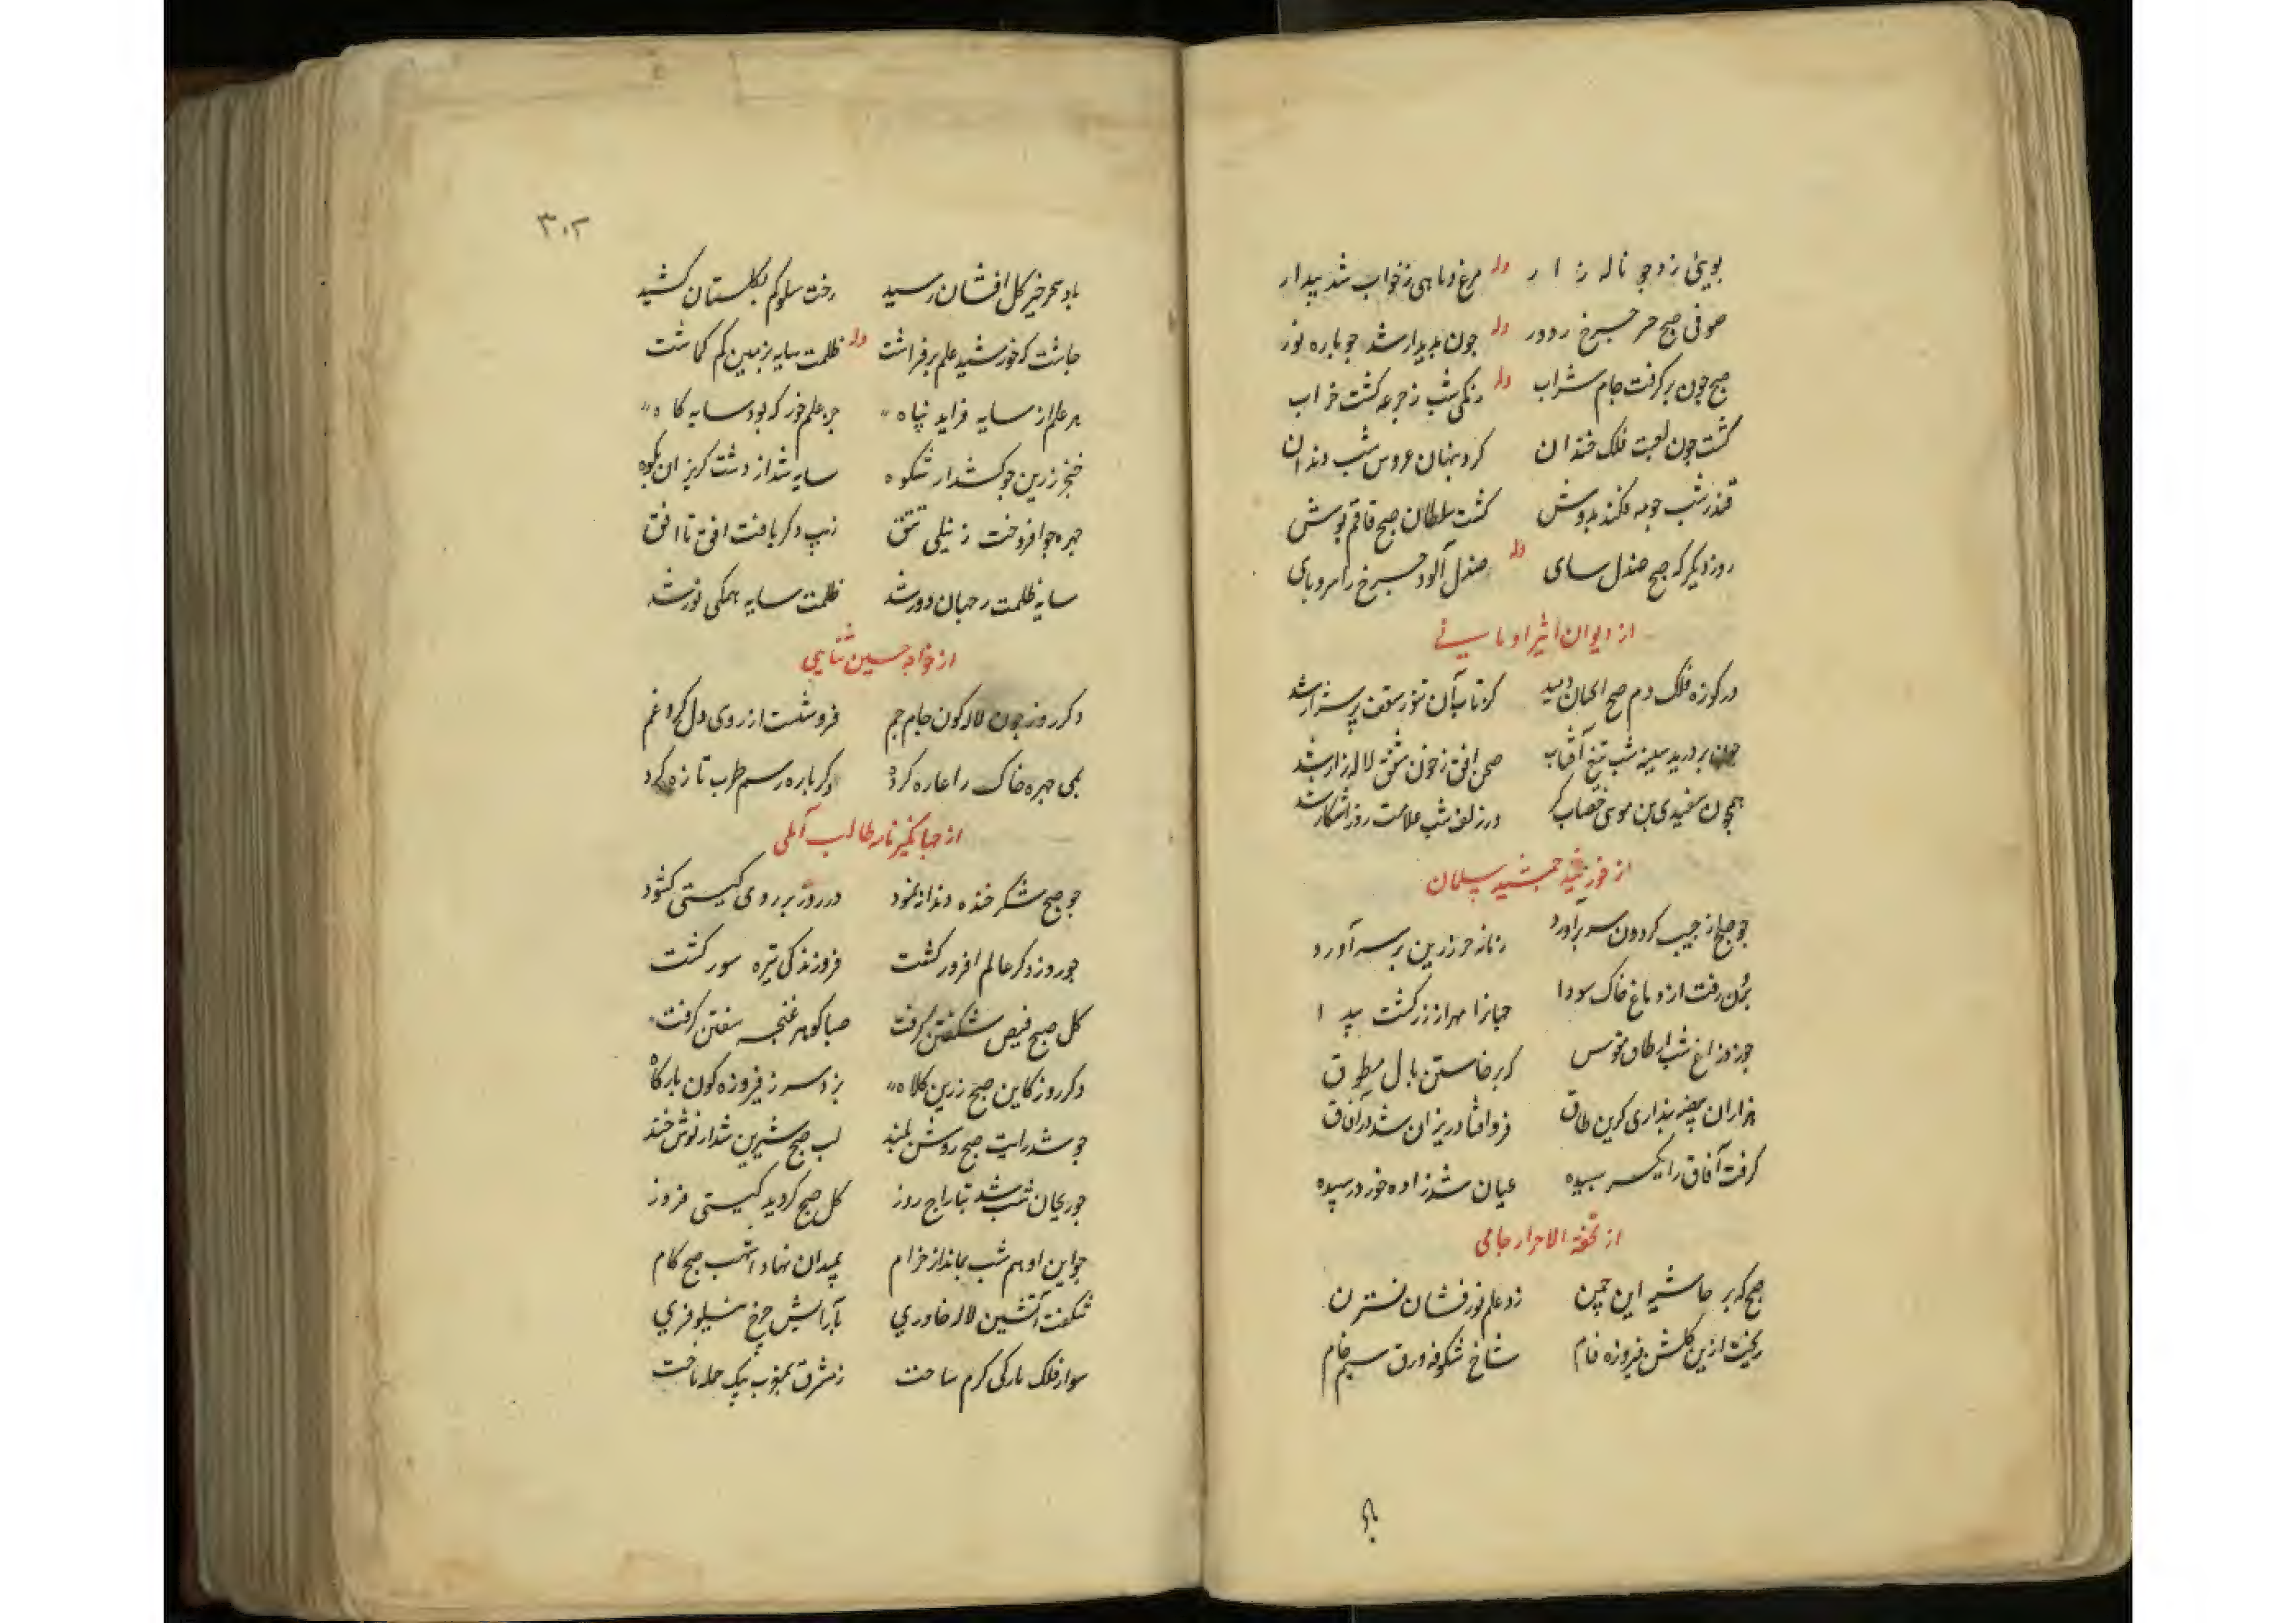 بوینی زد چو ناله زار وله مرغ و ماهی ز خواب شد بیدار
صوفی صبح در دور وله چون پدیدار شد چو پاره نور
صبح چون بر کرفت جام شراب وله زنکی شب ز جرعه کشت خراب
کشت چون لعبت فلک خندان کرد پنهان عروس شب دندان
قندز شب چو مه فکند بدوش کشت سلطان صبح قاقم پوش
روز دیکر که صبح صندل سای وله صندل آلود چرخ را سر و پای
از دیوان اثیر اومانی
در کوزه فلک دم صبح دمید کز تاب آن تنور سقف پر شرار شد
چون بر درید سینه شب تیغ آفتاب صحن افق ز خون شفق لاله زار شد
همچون سفیدی بن موی خضاب کر در زلف شب علامت روز آشکار شد
از خورشید جمشید سلمان
چو صبح از جیب کردون سر برآورد زناز زرین بر سر آورد
برون رفت از دماغ خاک سودا جهانرا مهر از زر کشت پیدا
چو زد زاغ شب از طاق مقوس کبر خاستن بال مطوق
هزاران بیضه پنداری کزین طاق فرو افتاد ریزان شد در آفاق
کرفت آفاق را یکسر سپیده عیان شد زاده خور در سپیده
از تحفة الاحرار جامی
صبح که بر حاشیه این چمن زد علم نور فشان نسترن
ریخت ازین کلشن فیروزه فام شاخ شکوفه ورق سیم خام
با
۳۰۲
باد سحر خیز کل افشان رسید رخت سلوکم بکلستان کشید
چاشت که خورشید علم بر فراشت وله ظلمت سایه بزمین کم کماشت
هر علم از سایه فزاید پناه جز علم خور که بود سایه کاه
خنجر زرین چو کشد از شکوه سایه شد از دشت کریزان بکوه
چهره چو افروخت ز نیلی تتق زیب دکر یافت افق تا افق
سایه ظلمت ز جهان دور شد ظلمت سایه همکی نور شد
از خواجه حسین ثنایی
دکر روز چون لاله کون جام جم فرو شست از روی دل کرد غم
بمی چهره خاک را غازه کرد دکر باره رسم طرب تازه کرد
از جهانکیر نامه طالب آملی
چو صبح شکر خنده دندان نمود در روز بر روی کیتی کشود
چو روز دکر عالم افروز کشت فروزندکی تیره سوز کشت
کل صبح فیض شکفتن کرفت صبا کوهر غنچه سفتن کرفت
دکر روز کاین صبح زرین کلاه بزد سر ز فیروزه کون بارکاه
چو شد رایت صبح روشن بلند لب صبح شیرین شد از نوش خند
چو ریحان شب شد بتاراج روز کل صبح کردید کیتی فروز
چو این ادهم شب بماند از خرام بمیدان نهاد اشهب صبح کام
شکفت آتشین لاله خاوری بآرایش چرخ نیلوفری
سوار فلک بارکی کرم ساخت ز مشرق بمغرب بیک حمله تاخت